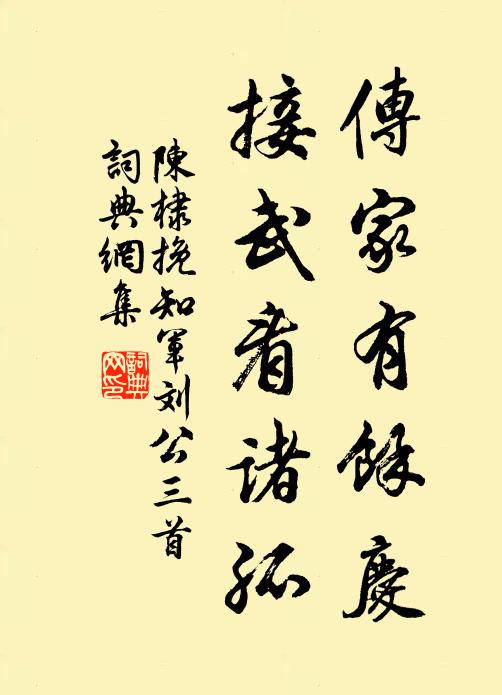 傳家有餘慶
接武看諸孤
陳棣挽知軍刘公三首
詞典網集
詞典網印